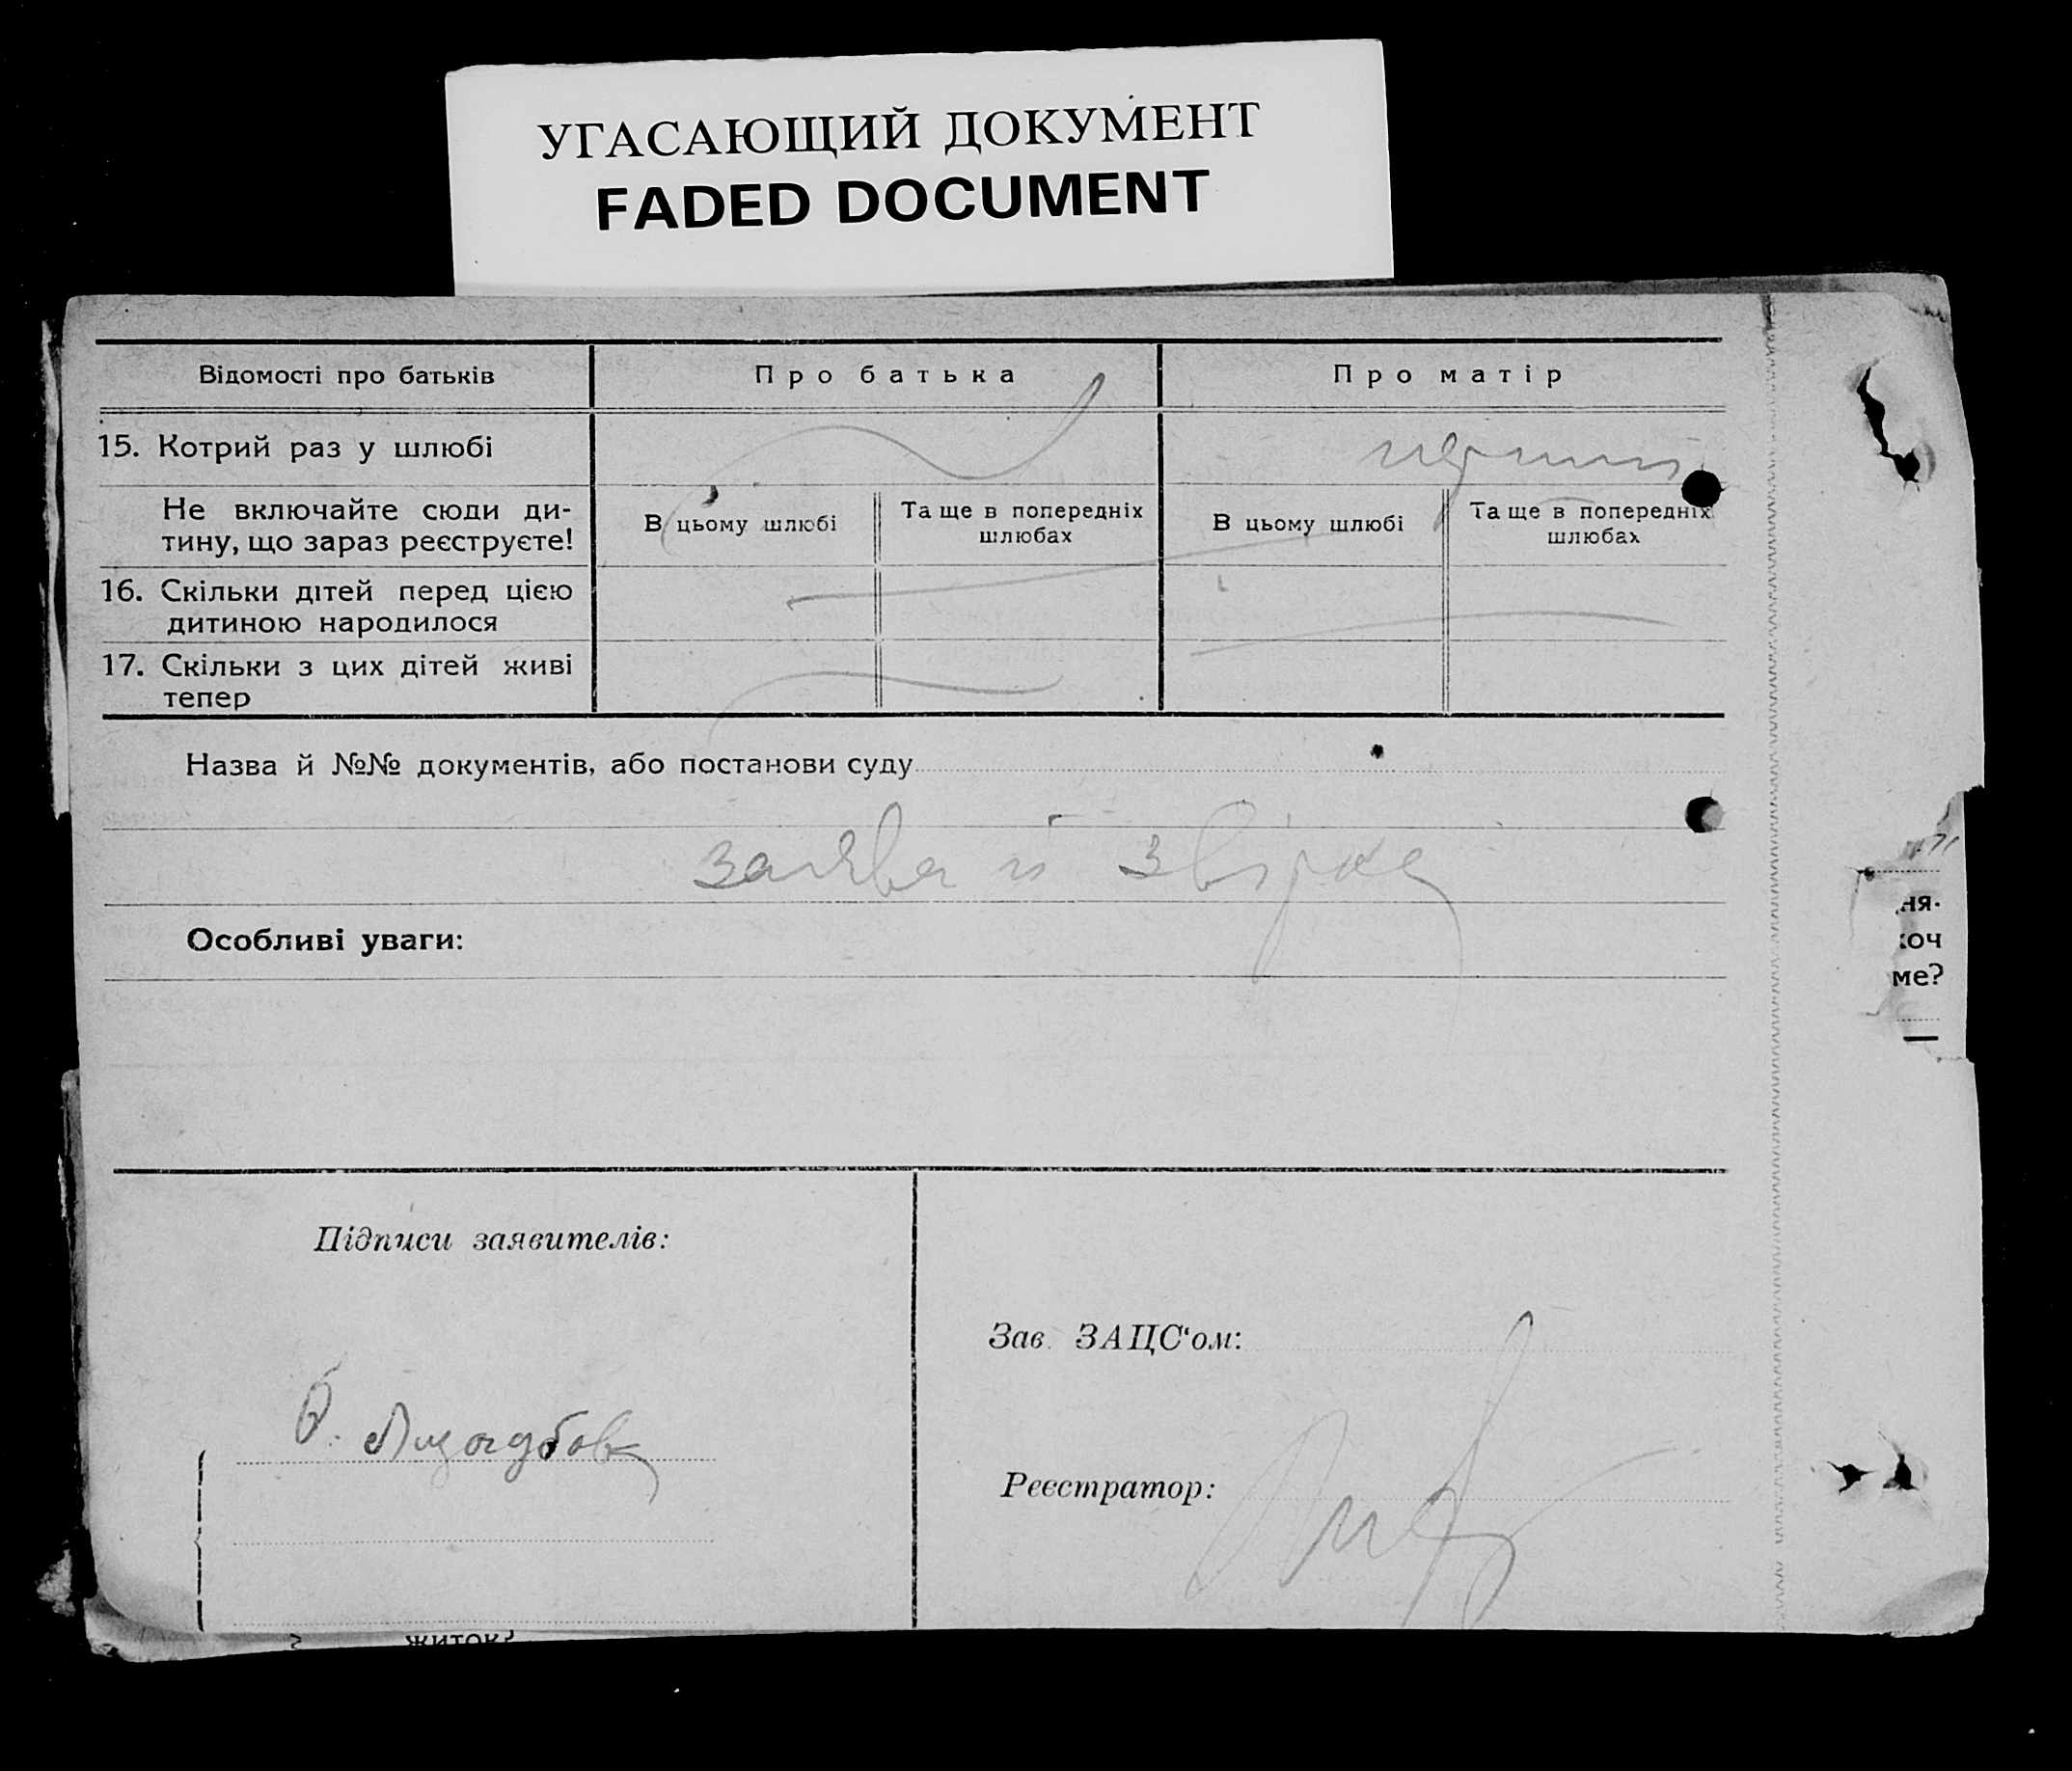 УГАСАЮЩИЙ ДОКУМЕНТ
FADED DOCUMENT
Відомості про батьків
Про батька
Про матір
15. Котрий раз у шлюбі
перший
Не включайте сюди ди-
тину, що зараз реєструєте!
В цьому шлюбі
Та ще в попередніх
шлюбах
В цьому шлюбі
Та ще в попередніх
шлюбах
16. Скільки дітей перед цією
дитиною народилося
17. Скільки з цих дітей живі
тепер
Назва й №№ документів, або постанови суду
заява й
Особливі уваги:
ня-
оч
ме?
Підписи заявителів:
Зав. ЗАЦС'ом:
Реєстратор:
житок?